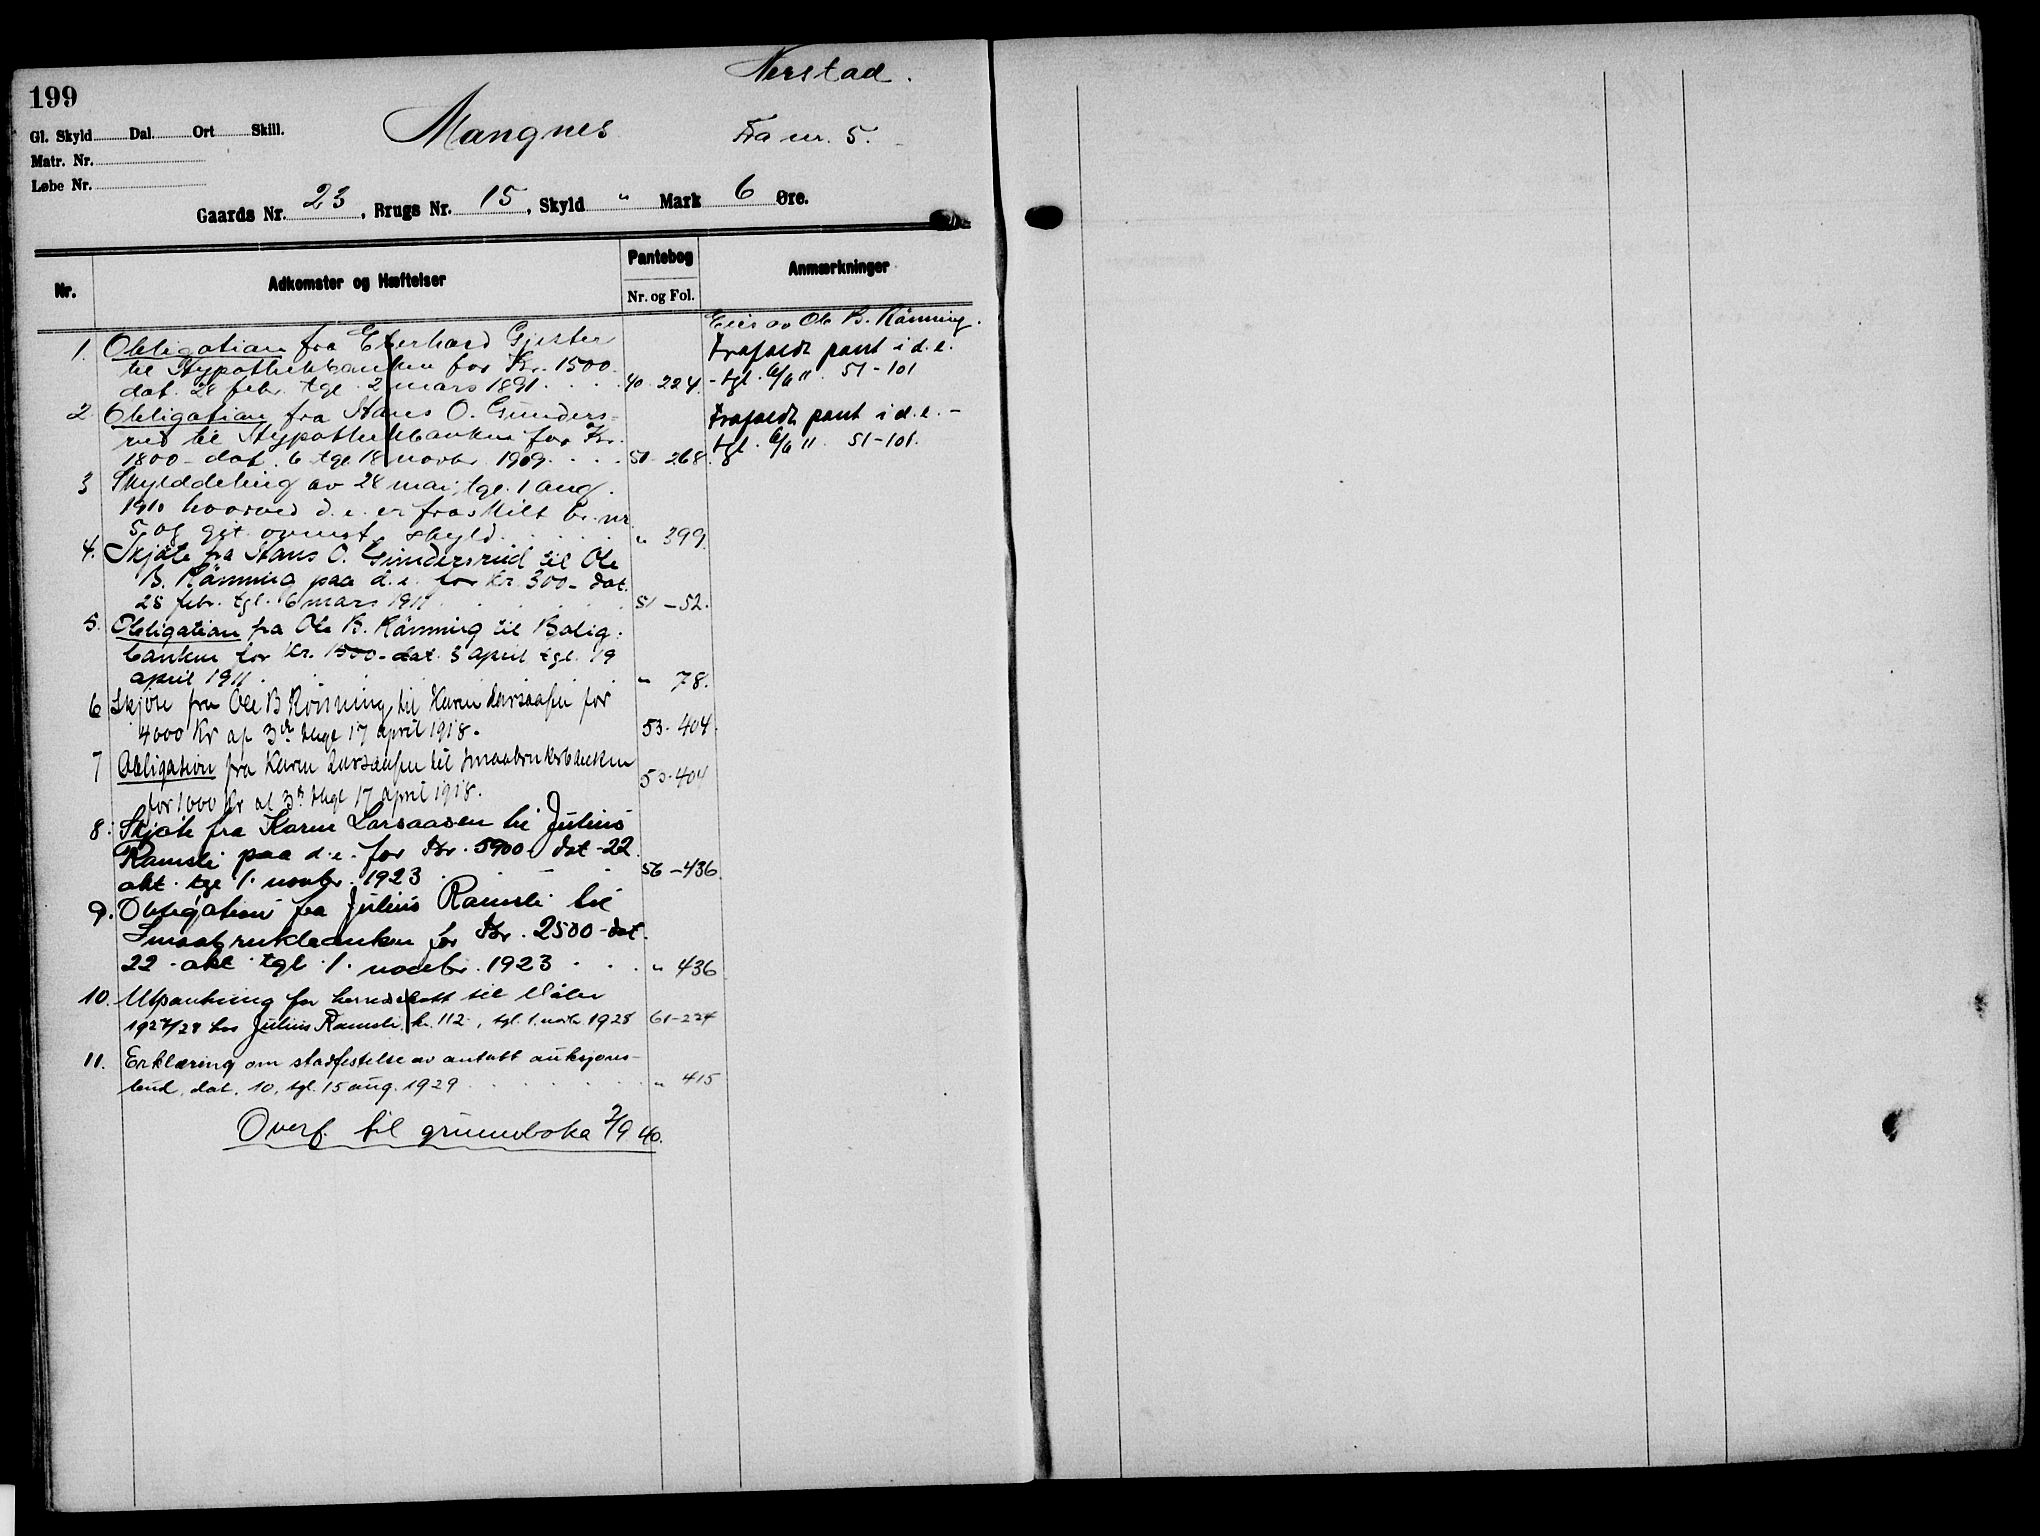 199
Nerstad.
Gl. Skyld Dal Ort Skill.
Mangnes
Fra nr. 5.
Matr. Nr.
Løbe Nr.
Gaards Nr. 23, Brugs Nr. 15, Skyld " Mark 6 Øre.
Nr.
Adkomster og Hæftelser
Pantebog
Nr. og Fol.
Anmærkninger
Eies av Ole B. Rönning.
1. Obligation fra Eberhard Gjester
til Hypothekbanken for Kr. 1500
dat. 28 febr. tgl. 2 mars 1891. 40 - 224.
Frafaldt pant i d. e.
- tgl. 6/6 11. 51-101
2 Obligation fra Hans O. Gunders-
rud til Hypothekbanken for Kr.
1800 - dat. 6 tgl. 18 novbr. 1909. 50 - 268.
Frafaldt pant i d. e. -
tgl. 6/6 11. 51-101.
3 Skylddeling av 28 mai, tgl. 1 aug.
1910 hvorved d. e. er fraskilt br. nr.
5 og git ovenst. skyld. " 399.
4. Skjöte fra Hans O. Gundersrud til Ole
B. Rönning paa d. e. for Kr. 300 - dat.
28 febr. tgl. 6 mars 1911 51 - 52.
5. Obligation fra Ole B. Rönning til Bolig-
banken for Kr. 1500 - dat. 3 april tgl. 19
april 1911. " 78.
6 Skjöte fra Ole B Rönning til Karen Larsaasen for
4000 Kr af 3de thgl 17 april 1918. 53 - 404.
7 Obligation fra Karen Larsaasen til Smaabrukerbanken
for 1000 Kr af 3de thgl 17 april 1918. 53 - 404
8. Skjöte fra Karen Larsaasen til Julius
Ramsli paa d. e. for Kr. 5900 - dat - 22
okt. tgl 1. novbr. 1923 56 - 436.
9. Obligation fra Julius Ramsli til
Smaabrukbanken for Kr. 2500 - dat.
22 - okt. tgl. 1. novbr. 1923 " 436
10. Utpantning for herredskatt til Våler
1927/28 hos Julius Ramsli, kr. 112, tgl. 1. novbr. 1928 61 - 224
11. Erklæring om stadfestelse av antatt auksjons-
bud, dat. 10, tgl. 15 aug. 1929 " 415
Overf. til grunnboka 2/9 40.